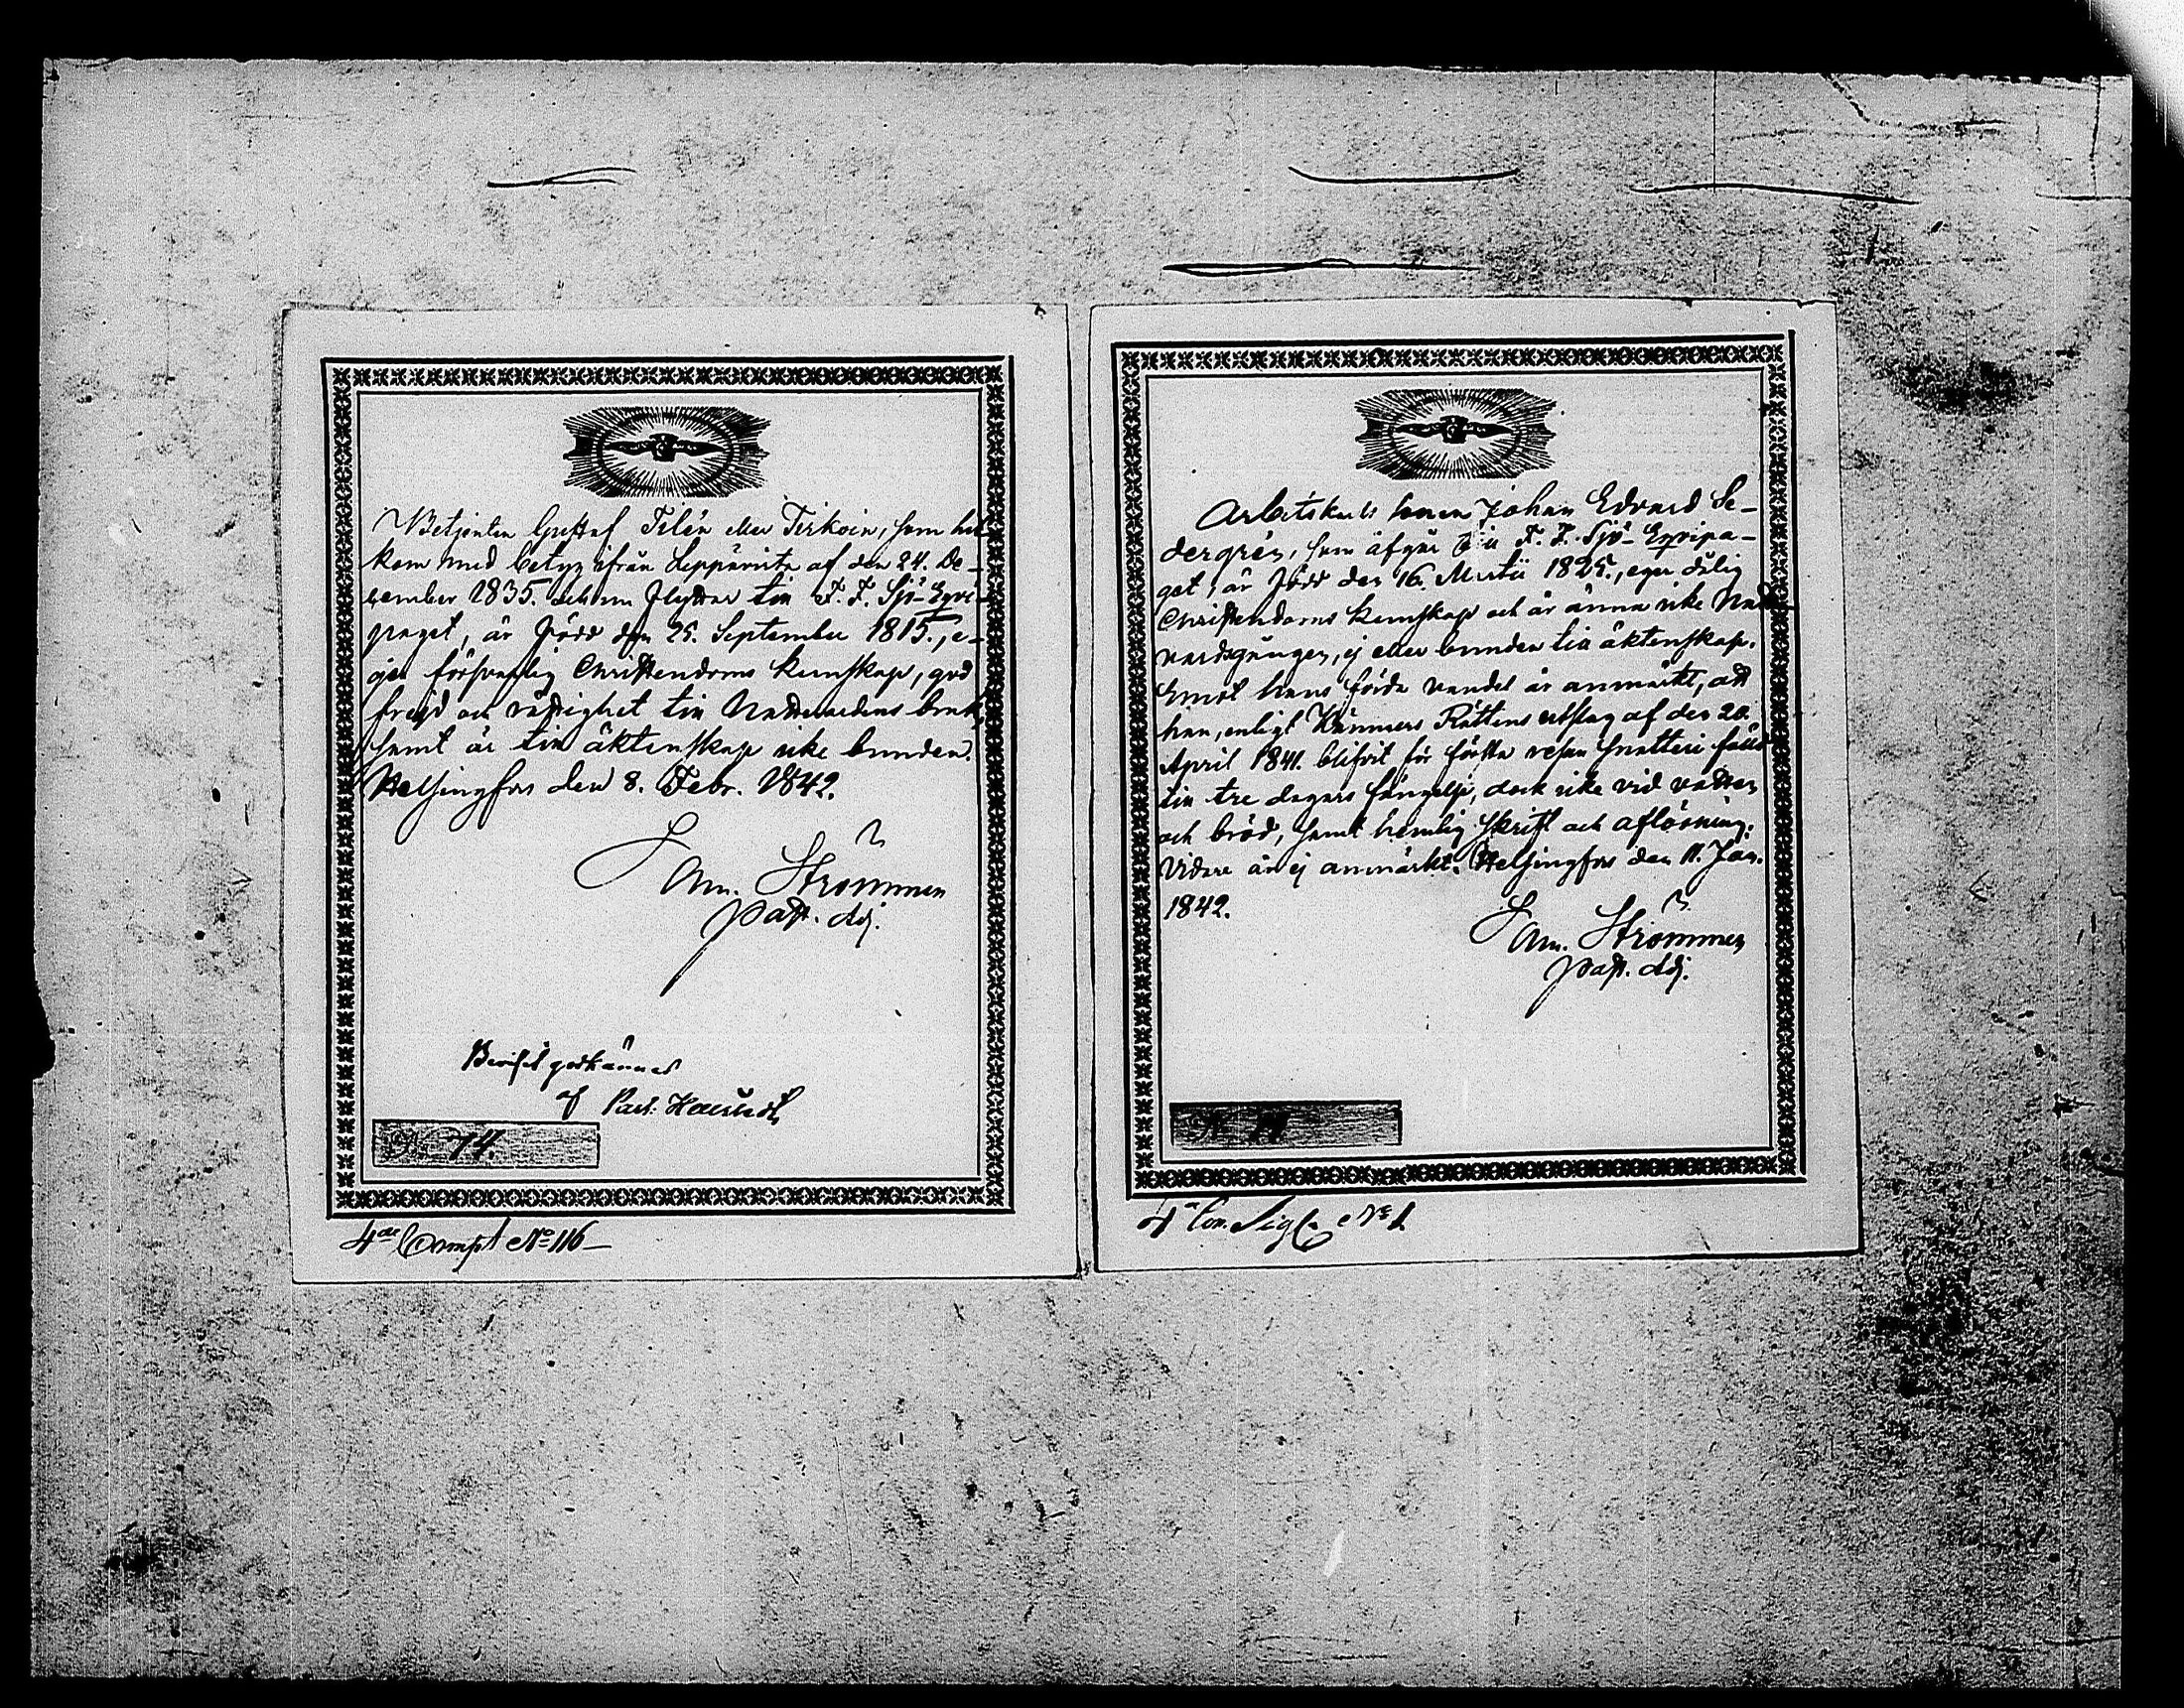 Betjenten Gustaf Tilén eller Tirkoin, som hit
kom med betyg ifrån Leppävirta af den 24. De-
cember 1835. och nu flyttar till F. F. Sjö-Eqvi-
paget, är född den 25. September 1815., e-
ger försvarlig Christendoms kunskap, god
frejd och rättighet till Nattvardens bruk,
samt är till äktenskap icke bunden.
Helsingfors den 8. Febr. 1842.
Am. Strömmer
Past. Adj.
Beviset godkännes
af Past:
N 74.
4de Compt No 116
Arbetskarls sonen Johan Edvard Se-
dergrén, som afgår till F. F. Sjö-Eqvipa-
get, är född den 16. Martii 1825., eger dålig
Christendoms kunskap och är ännu icke Natt
vardsgången, ej eller bunden till äktenskap.
Emot hans förda vandel är anmärkt, att
han, enligt Kämners Rättens utslag af den 20.
April 1841. blifvit för första resan snatteri fälld
till tre dagars fängelse, dock icke vid vatten
och bröd, samt hemlig skrift och aflösning.
Vidare är ej anmärkt. Helsingfors den 11. Jan.
1842.
Am. Strömmer
Past. Adj.
N 14
4 Com. No 1